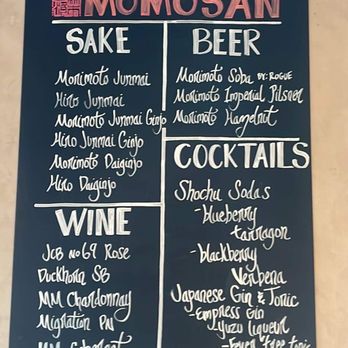 MOMOSAN
SAKE
Morimoto Junmai
Hiro Junmai
Morimoto Junmai Ginjo
Hiro Junmai Ginjo
Morimoto Daiginjo
Hiro Daiginjo
WINE
JCB No 69 Rose
Duckhorn SB
MM Chardonnay
Migration PN
MM Cabernet
BEER
Morimoto Soba BY: ROGUE
Morimoto Imperial Pilsner
Morimoto Hazelnut
COCKTAILS
Shochu Sodas
-blueberry
tarragon
-blackberry
Verbena
Japanese Gin & Tonic
-Empress Gin
Yuzu liqueur
-Fever tree tonic